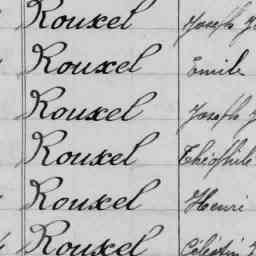 Rouxel Joseph
Rouxel Emile
Rouxel Joseph
Rouxel Théophile
Rouxel Henri
Rouxel Célestin